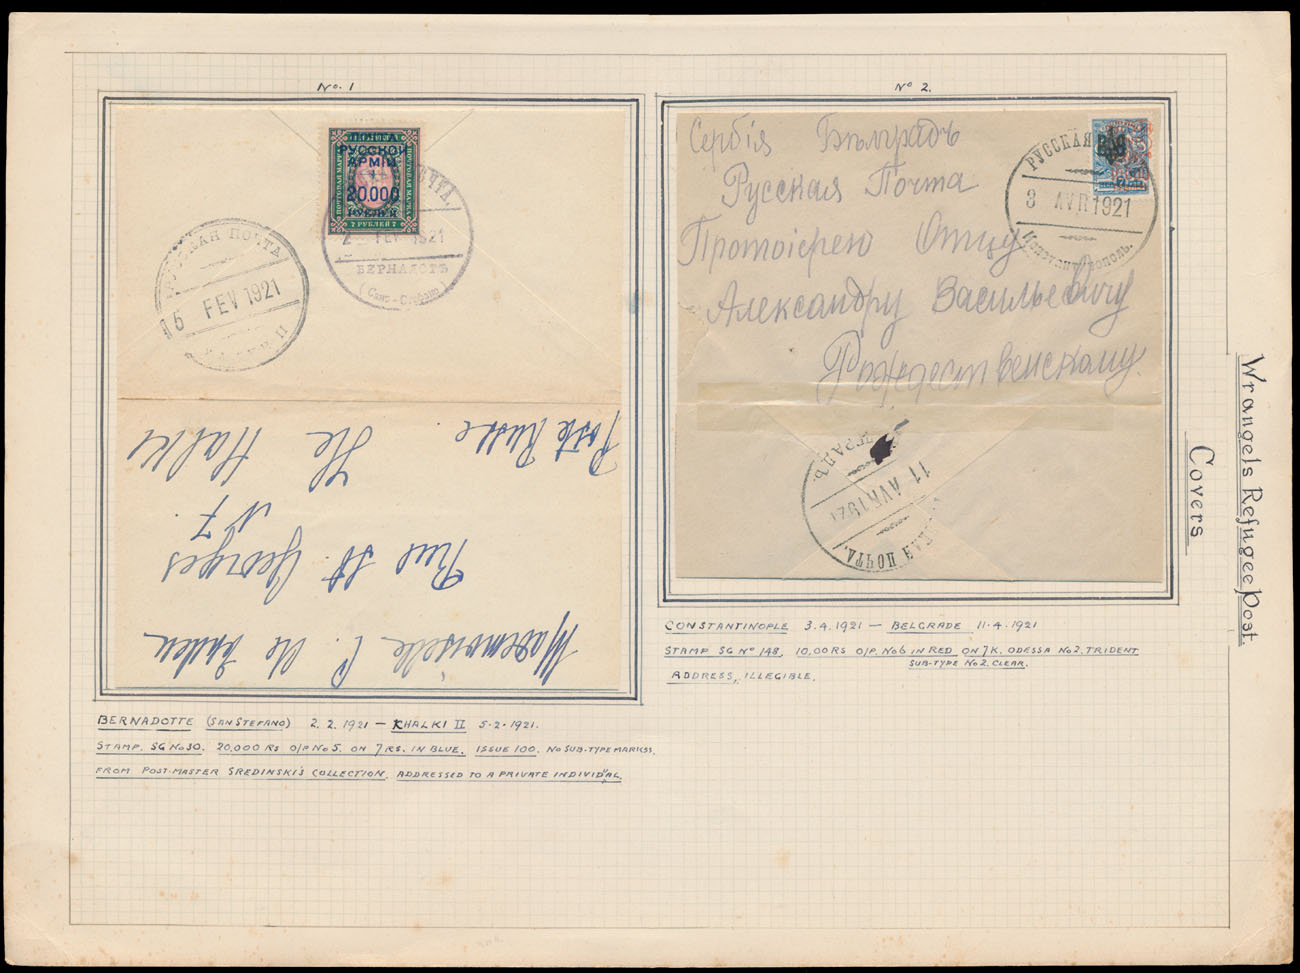 No. 1
ПОЧТА
РУССКОЙ
АРМІИ
20.000
РУБЛЕЙ
ПОЧТОВАЯ МАРКА
ПОЧТОВАЯ МАРКА
7 РУБЛЕЙ 7
ПОЧТА.
2 FEV 1921
БЕРНАДОТЪ
(Санъ-Стефано)
РУССКАЯ ПОЧТА
5 FEV 1921
II
Mademoiselle
Rue St. Georges
N 7.
Ile Halki
Poste Russe.
BERNADOTTE (SAN STEFANO) 2. 2. 1921 — KHALKI II 5·2·1921.
STAMP. SG No 30. 20,000 RS O/P No 5. ON 7 RS. IN BLUE. ISSUE 100. NO SUB-TYPE MARKSS.
FROM POST-MASTER SREDINSKI'S COLLECTION. ADDRESSED TO A PRIVATE INDIVIDUAL.
No 2.
Сербія Бѣлградъ
Русская Почта
Протоіерею Отцу
Александру Васильевичу
Рождественскому.
РУССКАЯ
3 AVR 1921
Константинополь.
ГРАДЪ.
11 AVR 1921
КАЯ ПОЧТА.
CONSTANTINOPLE 3.4.1921 — BELGRADE 11.4.1921
STAMP SG No 148. 10,00 RS O/P. No 6 IN RED, ON 7 K. ODESSA No 2. TRIDENT
SUB-TYPE No 2. CLEAR.
ADDRESS, ILLEGIBLE.
Wrangels Refugee Post.
Covers